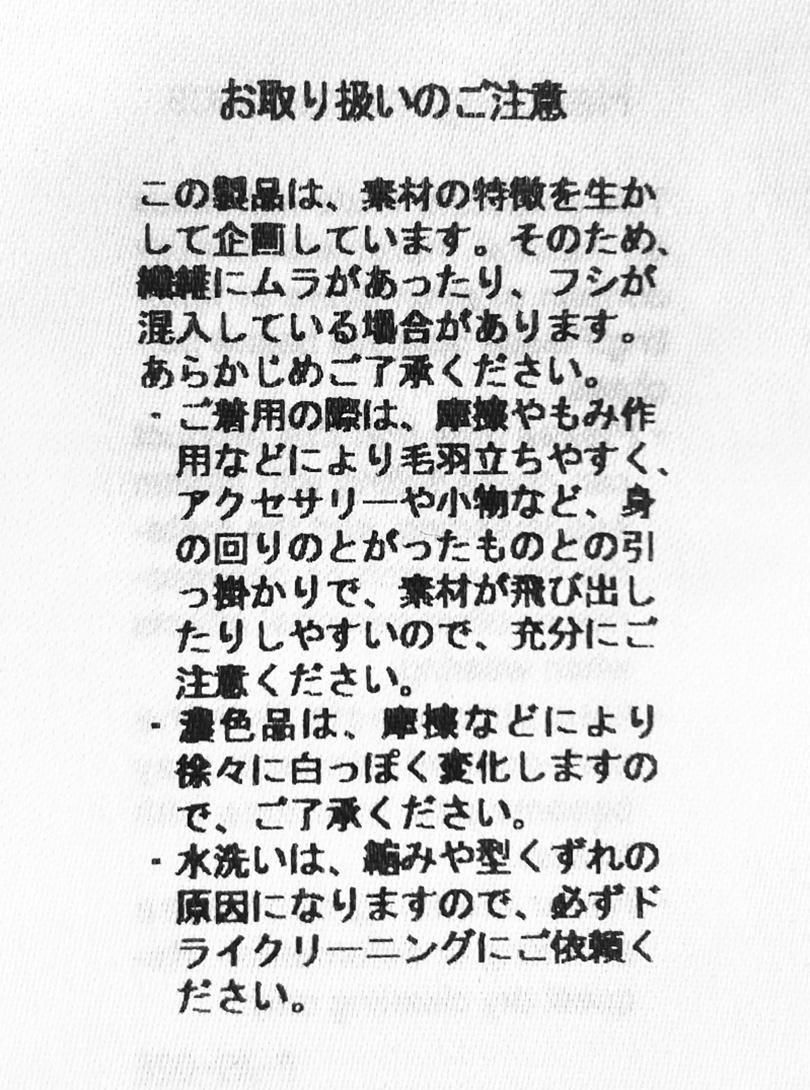 お取り扱いのご注意
この製品は、素材の特徴を生か
して企画しています。そのため、
繊維にムラがあったり、フシが
混入している場合があります。
あらかじめご了承ください。
・ご着用の際は、摩擦やもみ作
用などにより毛羽立ちやすく、
アクセサリーや小物など、身
の回りのとがったものとの引
っ掛かりで、素材が飛び出し
たりしやすいので、充分にご
注意ください。
・濃色品は、摩擦などにより
徐々に白っぽく変化しますの
で、ご了承ください。
・水洗いは、縮みや型くずれの
原因になりますので、必ずド
ライクリーニングにご依頼く
ださい。